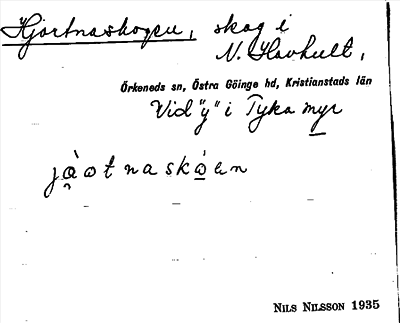 Hjortnaskogen, skog i
N. Hovhult,
Örkeneds sn, Östra Göinge hd, Kristianstads län
Vid "y" i Tyka myr
NILS NILSSON 1935